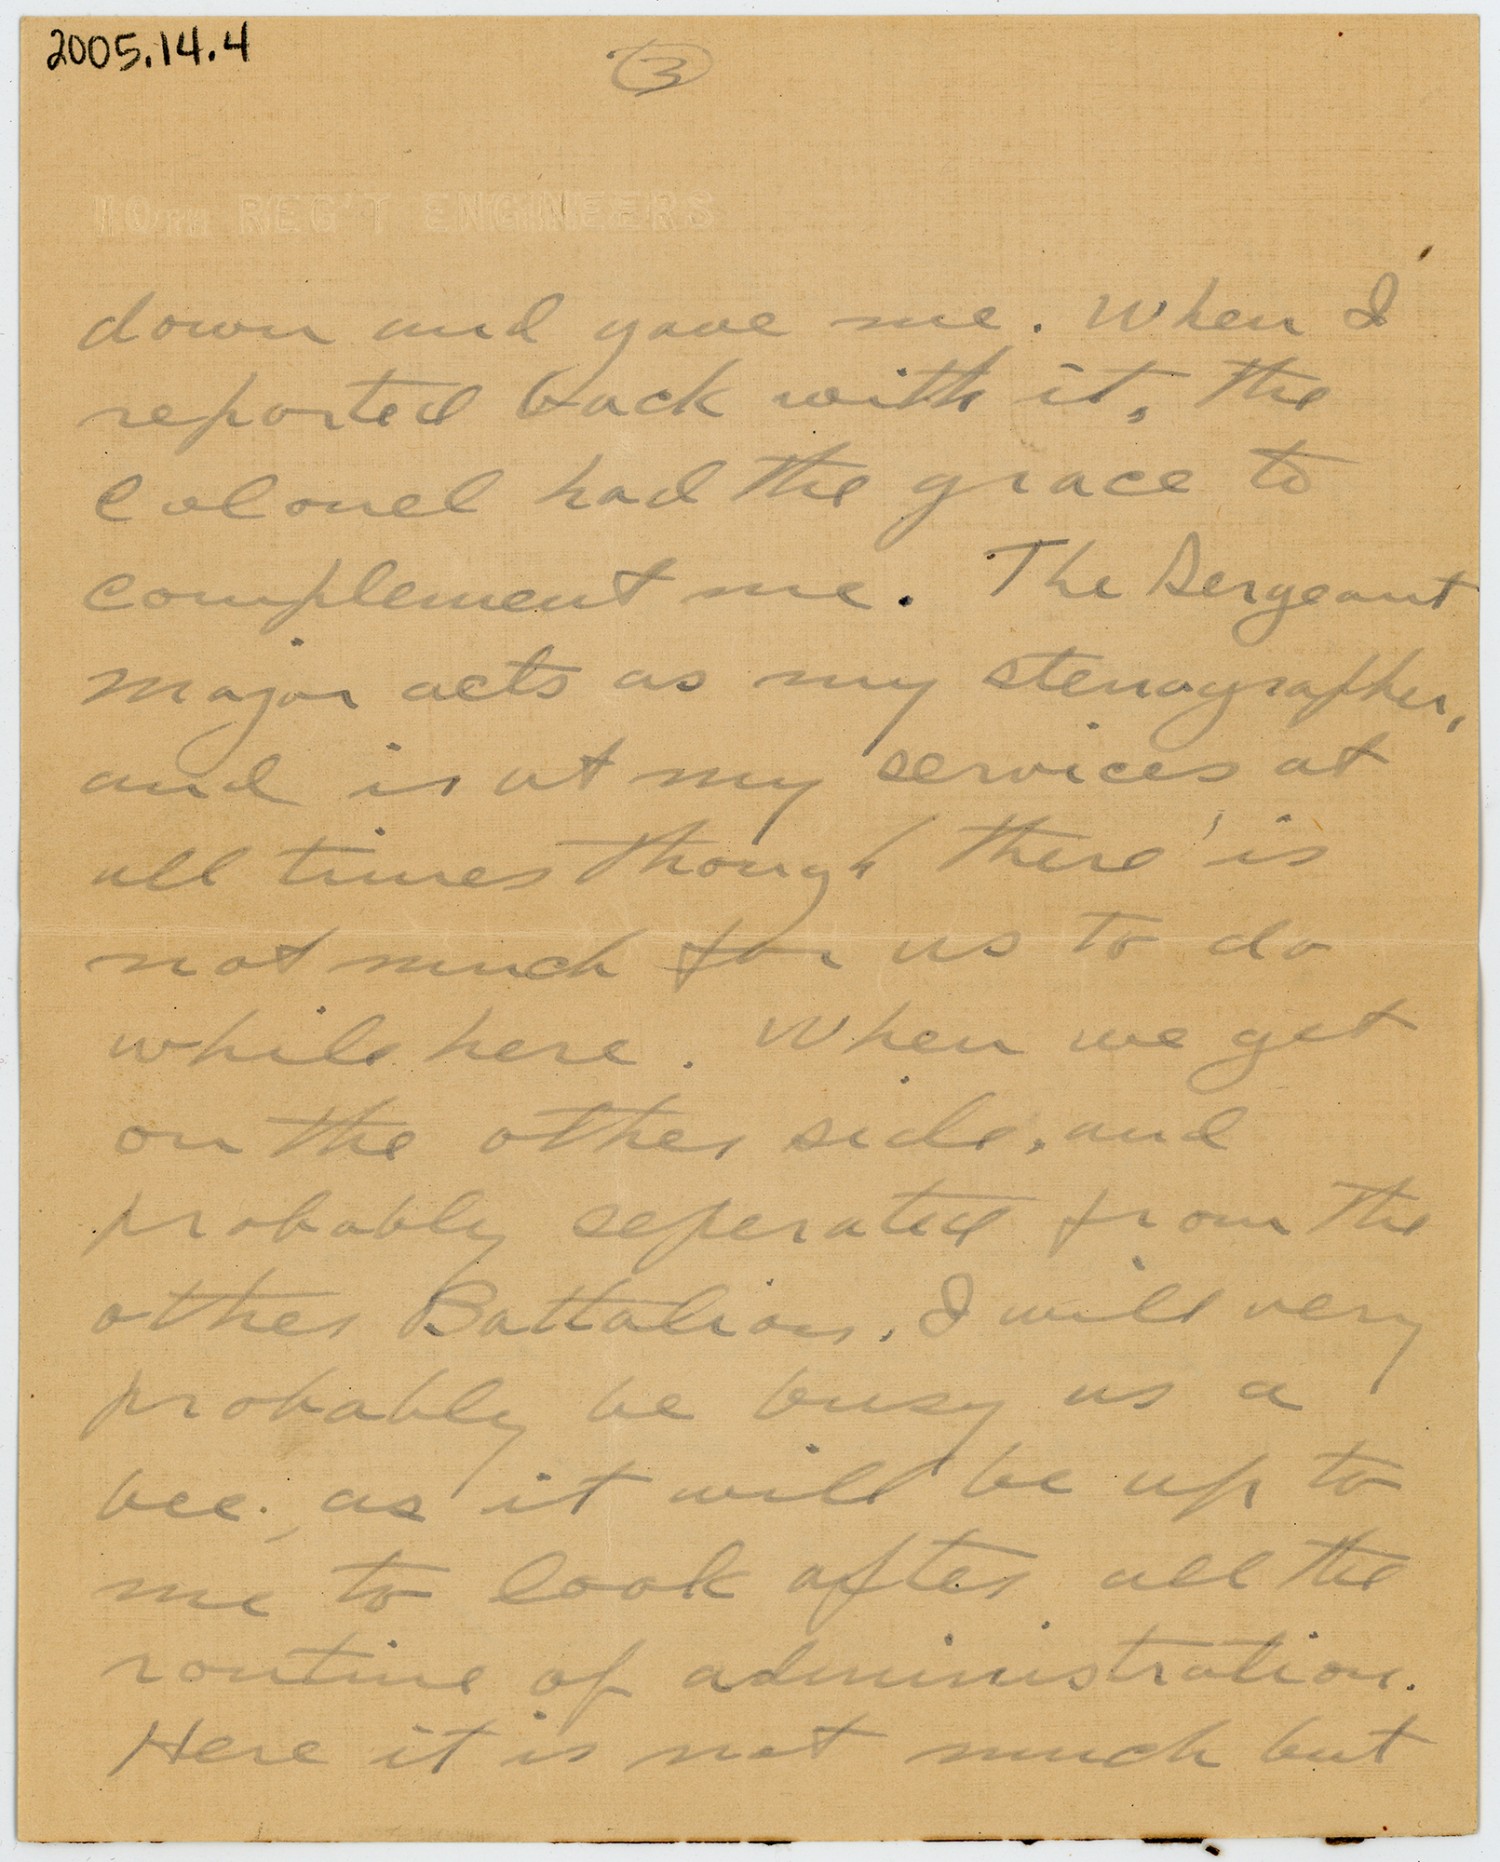 2005.14.4
3
10TH REG'T ENGINEERS
down and gave me. When I
reported back with it, the
Colonel had the grace to
complement me. The Sergeant
major acts as my stenographer,
and is at my services at
all times though there is
not much for us to do
while here. When we get
on the other side, and
probably seperated from the
other Battalion, I will very
probably be busy as a
bee, as it will be up to
me to look after all the
routine of administration.
Here it is not much but